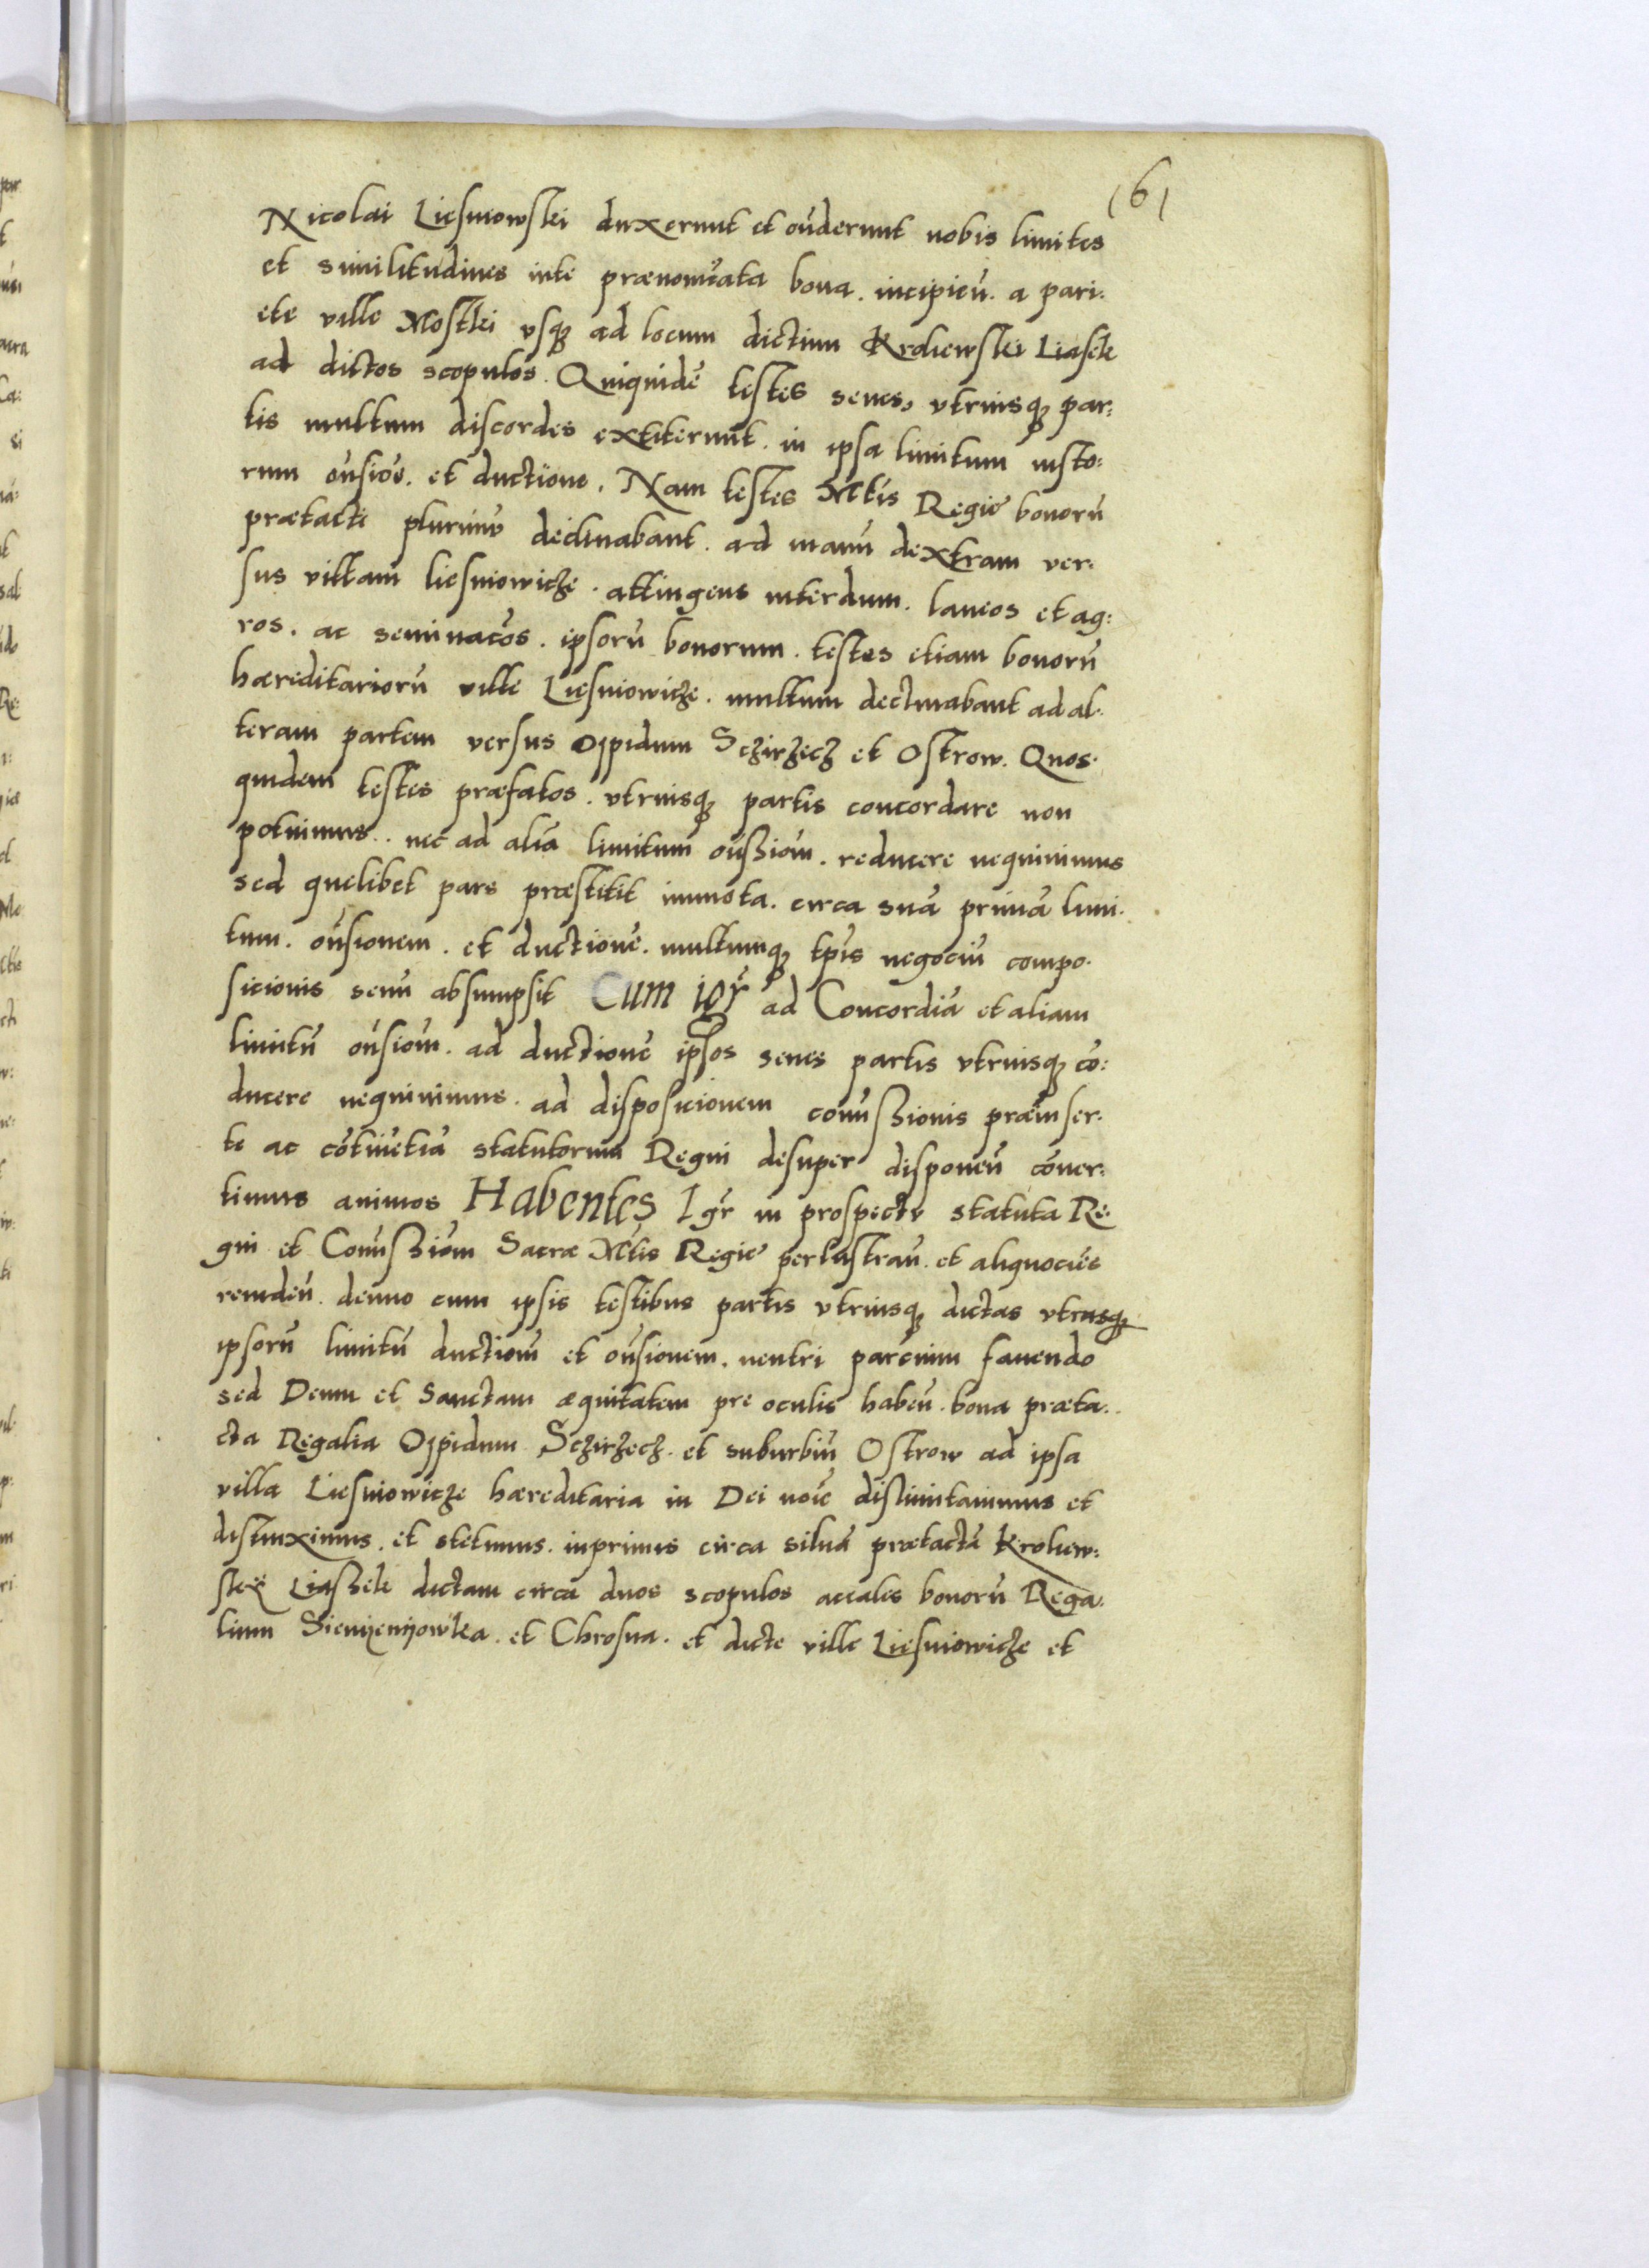 (6)
Nicolai Liesniowski duxerunt et on̄derunt nobis limites
et similitudines inte prænomīata bona. incipien̄. a pari:
ete ville Mostki vsq3 ad locum dictum Kroliewski Liasek
ad dictos scopulos. Quiquidē testes senes, vtriusq3 par:
tis multum discordes extiterunt. in ipsa limitum iusto:
rum on̄siōe. et ductione. Nam testes Mt̄is Regiē bonorū
prætacti plurimū declinabant. ad manū dextram ver:
sus villam liesniowicze. attingens interdum. laneos et ag:
ros. ac seminatōs. ipsorū bonorum. testes etiam bonorū
hæreditariorū ville Liesniowicze. multum declinabant ad al:
teram partem versus Oppidum Sczirzecz et Ostrow. Quos
quidem testes præfatos. vtriusq3 partis concordare non
potuimus.. nec ad aliā limitum on̄siom̄. reducere nequiuimus
sed quelibet pars præstitit immota. circa suā primā limi.
tum. on̄sionem. et ductionē. multumq3 tp̄is negociū compo.
sicionis senū absumpsit Cum igr̄ ad Concordiā et aliam
limitū on̄siom̄. ad ductionē ipsos senes partis vtriusq3 cō:
ducere nequiuimus. ad disposicionem com̄issionis præinser:
te ac cōtinētiā statutorum Regni desuper disponen̄ cōuer:
timus animos Habentes Igr̄ in prospectu statuta Re:
gni et Com̄issiom̄ Sacræ Mt̄is Regiē perlustran̄. et aliquocies
reuiden̄. denuo cum ipsis testibus partis vtriusq3 dictas vtrasq3
ipsorū limitū ductiom̄ et on̄sionem. neutri parcium fauendo
sed Deum et Sanctam æquitatem pre oculis haben̄. bona præta..
cta Regalia Oppidum Sczirzecz. et suburbiū Ostrow ad ipsa
villa Liesniowicze hæreditaria in Dei noīe dislimitauimus et
distinximus. et stetimus. inprimis circa siluā prætactā Kroliew:
skij Liassek dictam circa duos scopulos acialis bonorū Rega.
lium Siemijenijowka. et Chrosna. et dicte ville Liesniowicze et